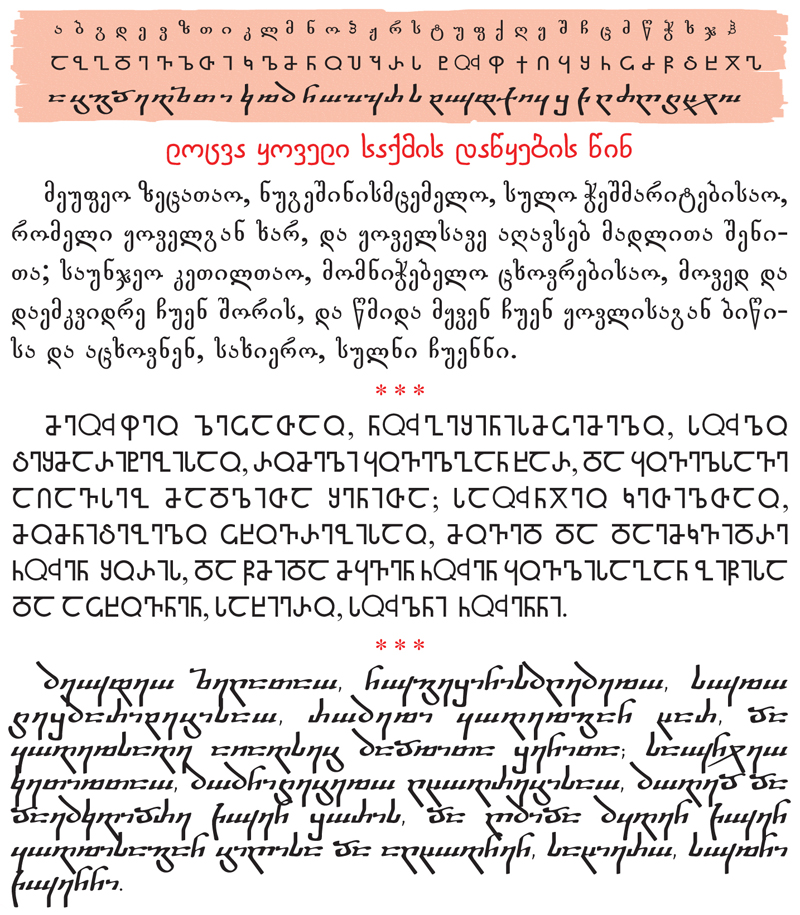 ა ბ გ დ ე ვ ზ თ ი კ ლ მ ნ ო პ ჟ რ ს ტ უ ფ ქ ღ ყ შ ჩ ც ძ წ ჭ ხ ჯ ჰ
Ⴀ Ⴁ Ⴂ Ⴃ Ⴄ Ⴅ Ⴆ Ⴇ Ⴈ Ⴉ Ⴊ Ⴋ Ⴌ Ⴍ Ⴎ Ⴏ Ⴐ Ⴑ Ⴒ ႭჃ Ⴔ Ⴕ Ⴖ Ⴗ Ⴘ Ⴙ Ⴚ Ⴛ Ⴜ Ⴝ Ⴞ Ⴟ Ⴠ
ⴀ ⴁ ⴂ ⴃ ⴄ ⴅ ⴆ ⴇ ⴈ ⴉ ⴊ ⴋ ⴌ ⴍ ⴎ ⴏ ⴐ ⴑ ⴒ ⴍⴣ ⴔ ⴕ ⴖ ⴗ ⴘ ⴙ ⴚ ⴛ ⴜ ⴝ ⴞ ⴟ ⴠ
ლოცვა ყოველი საქმის დაწყების წინ
მეუფეო ზეცათაო, ნუგეშინისმცემელო, სულო ჭეშმარიტებისაო,
რომელი ყოველგან ხარ, და ყოველსავე აღავსებ მადლითა შენი-
თა; საუნჯეო კეთილთაო, მომნიჭებელო ცხოვრებისაო, მოვედ და
დაემკვიდრე ჩუენ შორის, და წმიდა მყვენ ჩუენ ყოვლისაგან ბიწი-
სა და აცხოვნენ, სახიერო, სულნი ჩუენნი.
* * *
ႫႤႭჃႴႤႭ ႦႤႺႠႧႠႭ, ႌႭჃႂႤႸႈႌႈႱႫႺႤႫႤႪႭ, ႱႭჃႪႭ
ႝႤႸႫႠႰႈႲႤႡႈႱႠႭ, ႰႭႫႤႪႈ ႷႭႥႤႪႂႠႌ ႾႠႰ, ႣႠ ႷႭႥႤႪႱႠႥႤ
ႠႶႠႥႱႤႡ ႫႠႣႪႈႧႠ ႸႤႌႈႧႠ; ႱႠႭჃႌႿႤႭ ႩႤႧႈႪႧႠႭ,
ႫႭႫႌႈႝႤႡႤႪႭ ႺႾႭႥႰႤႡႈႱႠႭ, ႫႭႥႤႣ ႣႠ ႣႠႤႫႩႥႈႣႰႤ
ႹႭჃႤႌ ႸႭႰႈႱ, ႣႠ ႼႫႈႣႠ ႫႷႥႤႌ ႹႭჃႤႌ ႷႭႥႪႈႱႠႂႠႌ ႡႈႼႈႱႠ
ႣႠ ႠႺႾႭႥႌႤႌ, ႱႠႾႈႤႰႭ, ႱႭჃႪႌႈ ႹႭჃႤႌႌႈ.
* * *
ⴋⴄⴍⴣⴔⴄⴍ ⴆⴄⴚⴀⴇⴀⴍ, ⴌⴍⴣⴂⴄⴘⴈⴌⴈⴑⴋⴚⴄⴋⴄⴊⴍ, ⴑⴍⴣⴊⴍ
ⴝⴄⴘⴋⴀⴐⴈⴒⴄⴁⴈⴑⴀⴍ, ⴐⴍⴋⴄⴊⴈ ⴗⴍⴅⴄⴊⴂⴀⴌ ⴞⴀⴐ, ⴃⴀ
ⴗⴍⴅⴄⴊⴑⴀⴅⴄ ⴀⴖⴀⴅⴑⴄⴁ ⴋⴀⴃⴊⴈⴇⴀ ⴘⴄⴌⴈⴇⴀ; ⴑⴀⴍⴣⴌⴟⴄⴍ
ⴉⴄⴇⴈⴊⴇⴀⴍ, ⴋⴍⴋⴌⴈⴝⴄⴁⴄⴊⴍ ⴚⴞⴍⴅⴐⴄⴁⴈⴑⴀⴍ, ⴋⴍⴅⴄⴃ ⴃⴀ
ⴃⴀⴄⴋⴉⴅⴈⴃⴐⴄ ⴙⴍⴣⴄⴌ ⴘⴍⴐⴈⴑ, ⴃⴀ ⴜⴋⴈⴃⴀ ⴋⴗⴅⴄⴌ ⴙⴍⴣⴄⴌ
ⴗⴍⴅⴊⴈⴑⴀⴂⴀⴌ ⴁⴈⴜⴈⴑⴀ ⴃⴀ ⴀⴚⴞⴍⴅⴌⴄⴌ, ⴑⴀⴞⴈⴄⴐⴍ, ⴑⴍⴣⴊⴌⴈ
ⴙⴍⴣⴄⴌⴌⴈ.